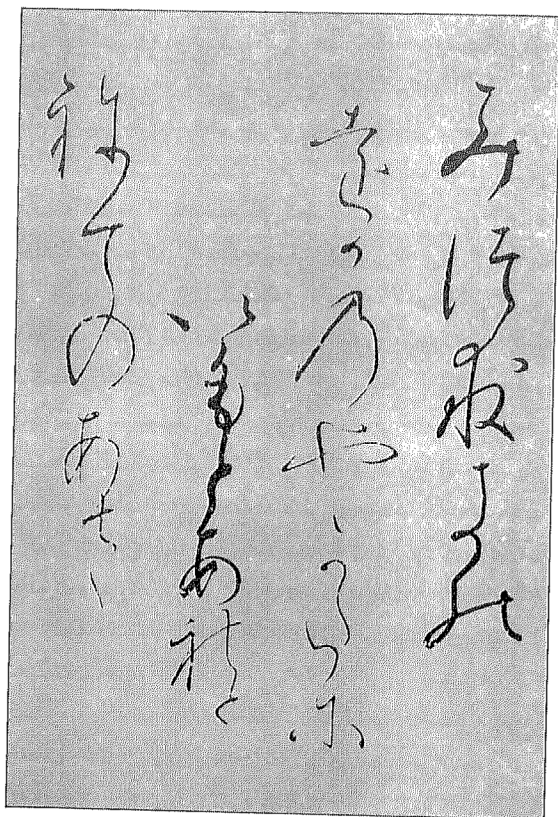 みつくきの
をかのやかたに
いもとあれと
ねてのあさけ